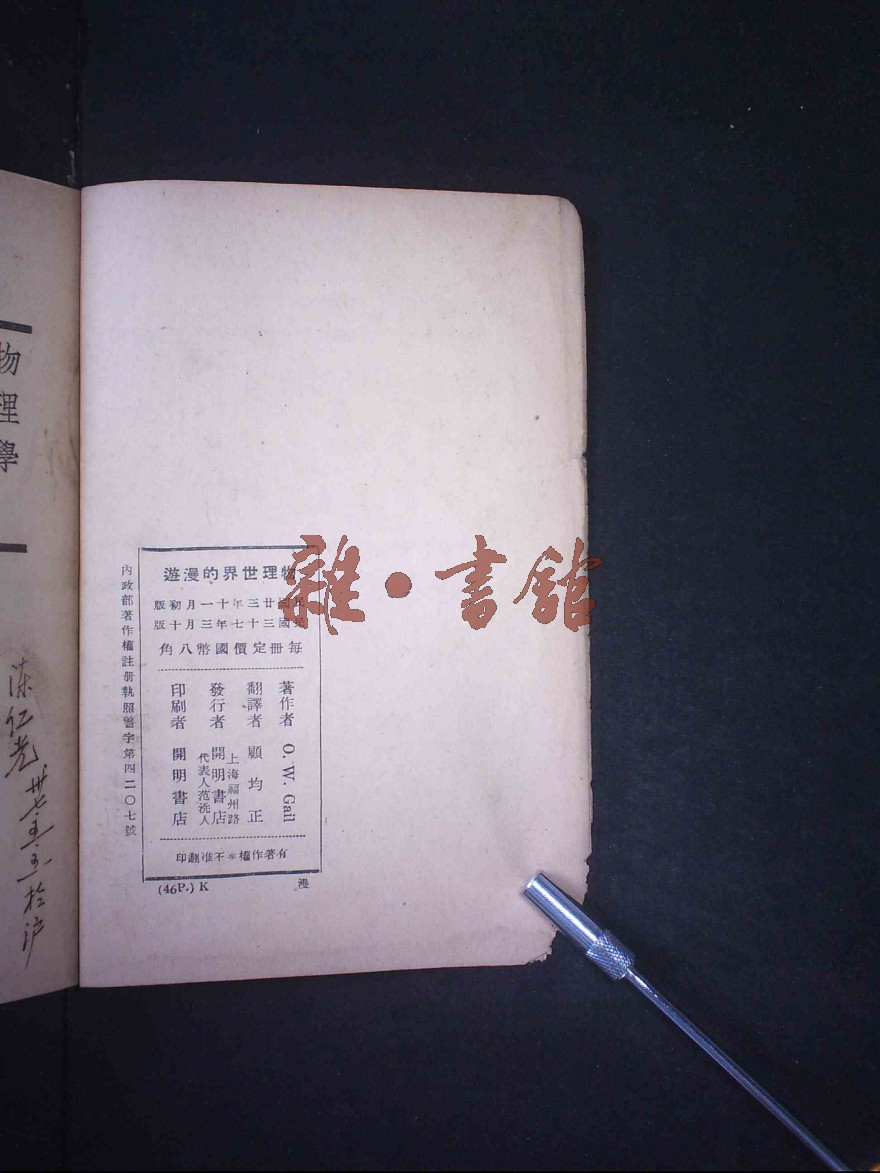 物理世界的漫遊
民國廿三年十一月初版
民國三十七年三月十版
每冊定價國幣八角
著作者 O. W. Gail
翻譯者 顧均正
發行者 開明書店
上海福州路
代表人范洗人
印刷者 開明書店
有著作權＊不准翻印
(46P.) K 漫
內政部著作權註册執照警字第四二〇七號
物理學
陈仁
於沪
雜·書館